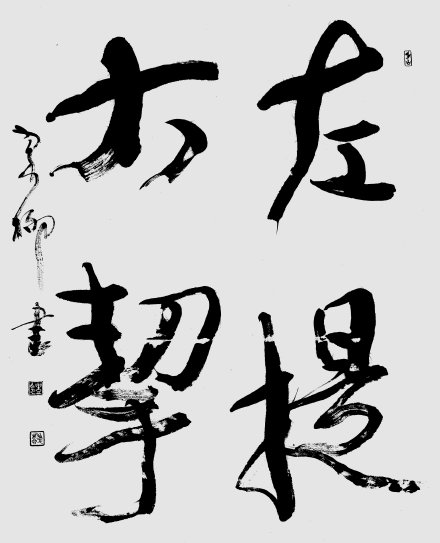 左提
右挈
寒柳書